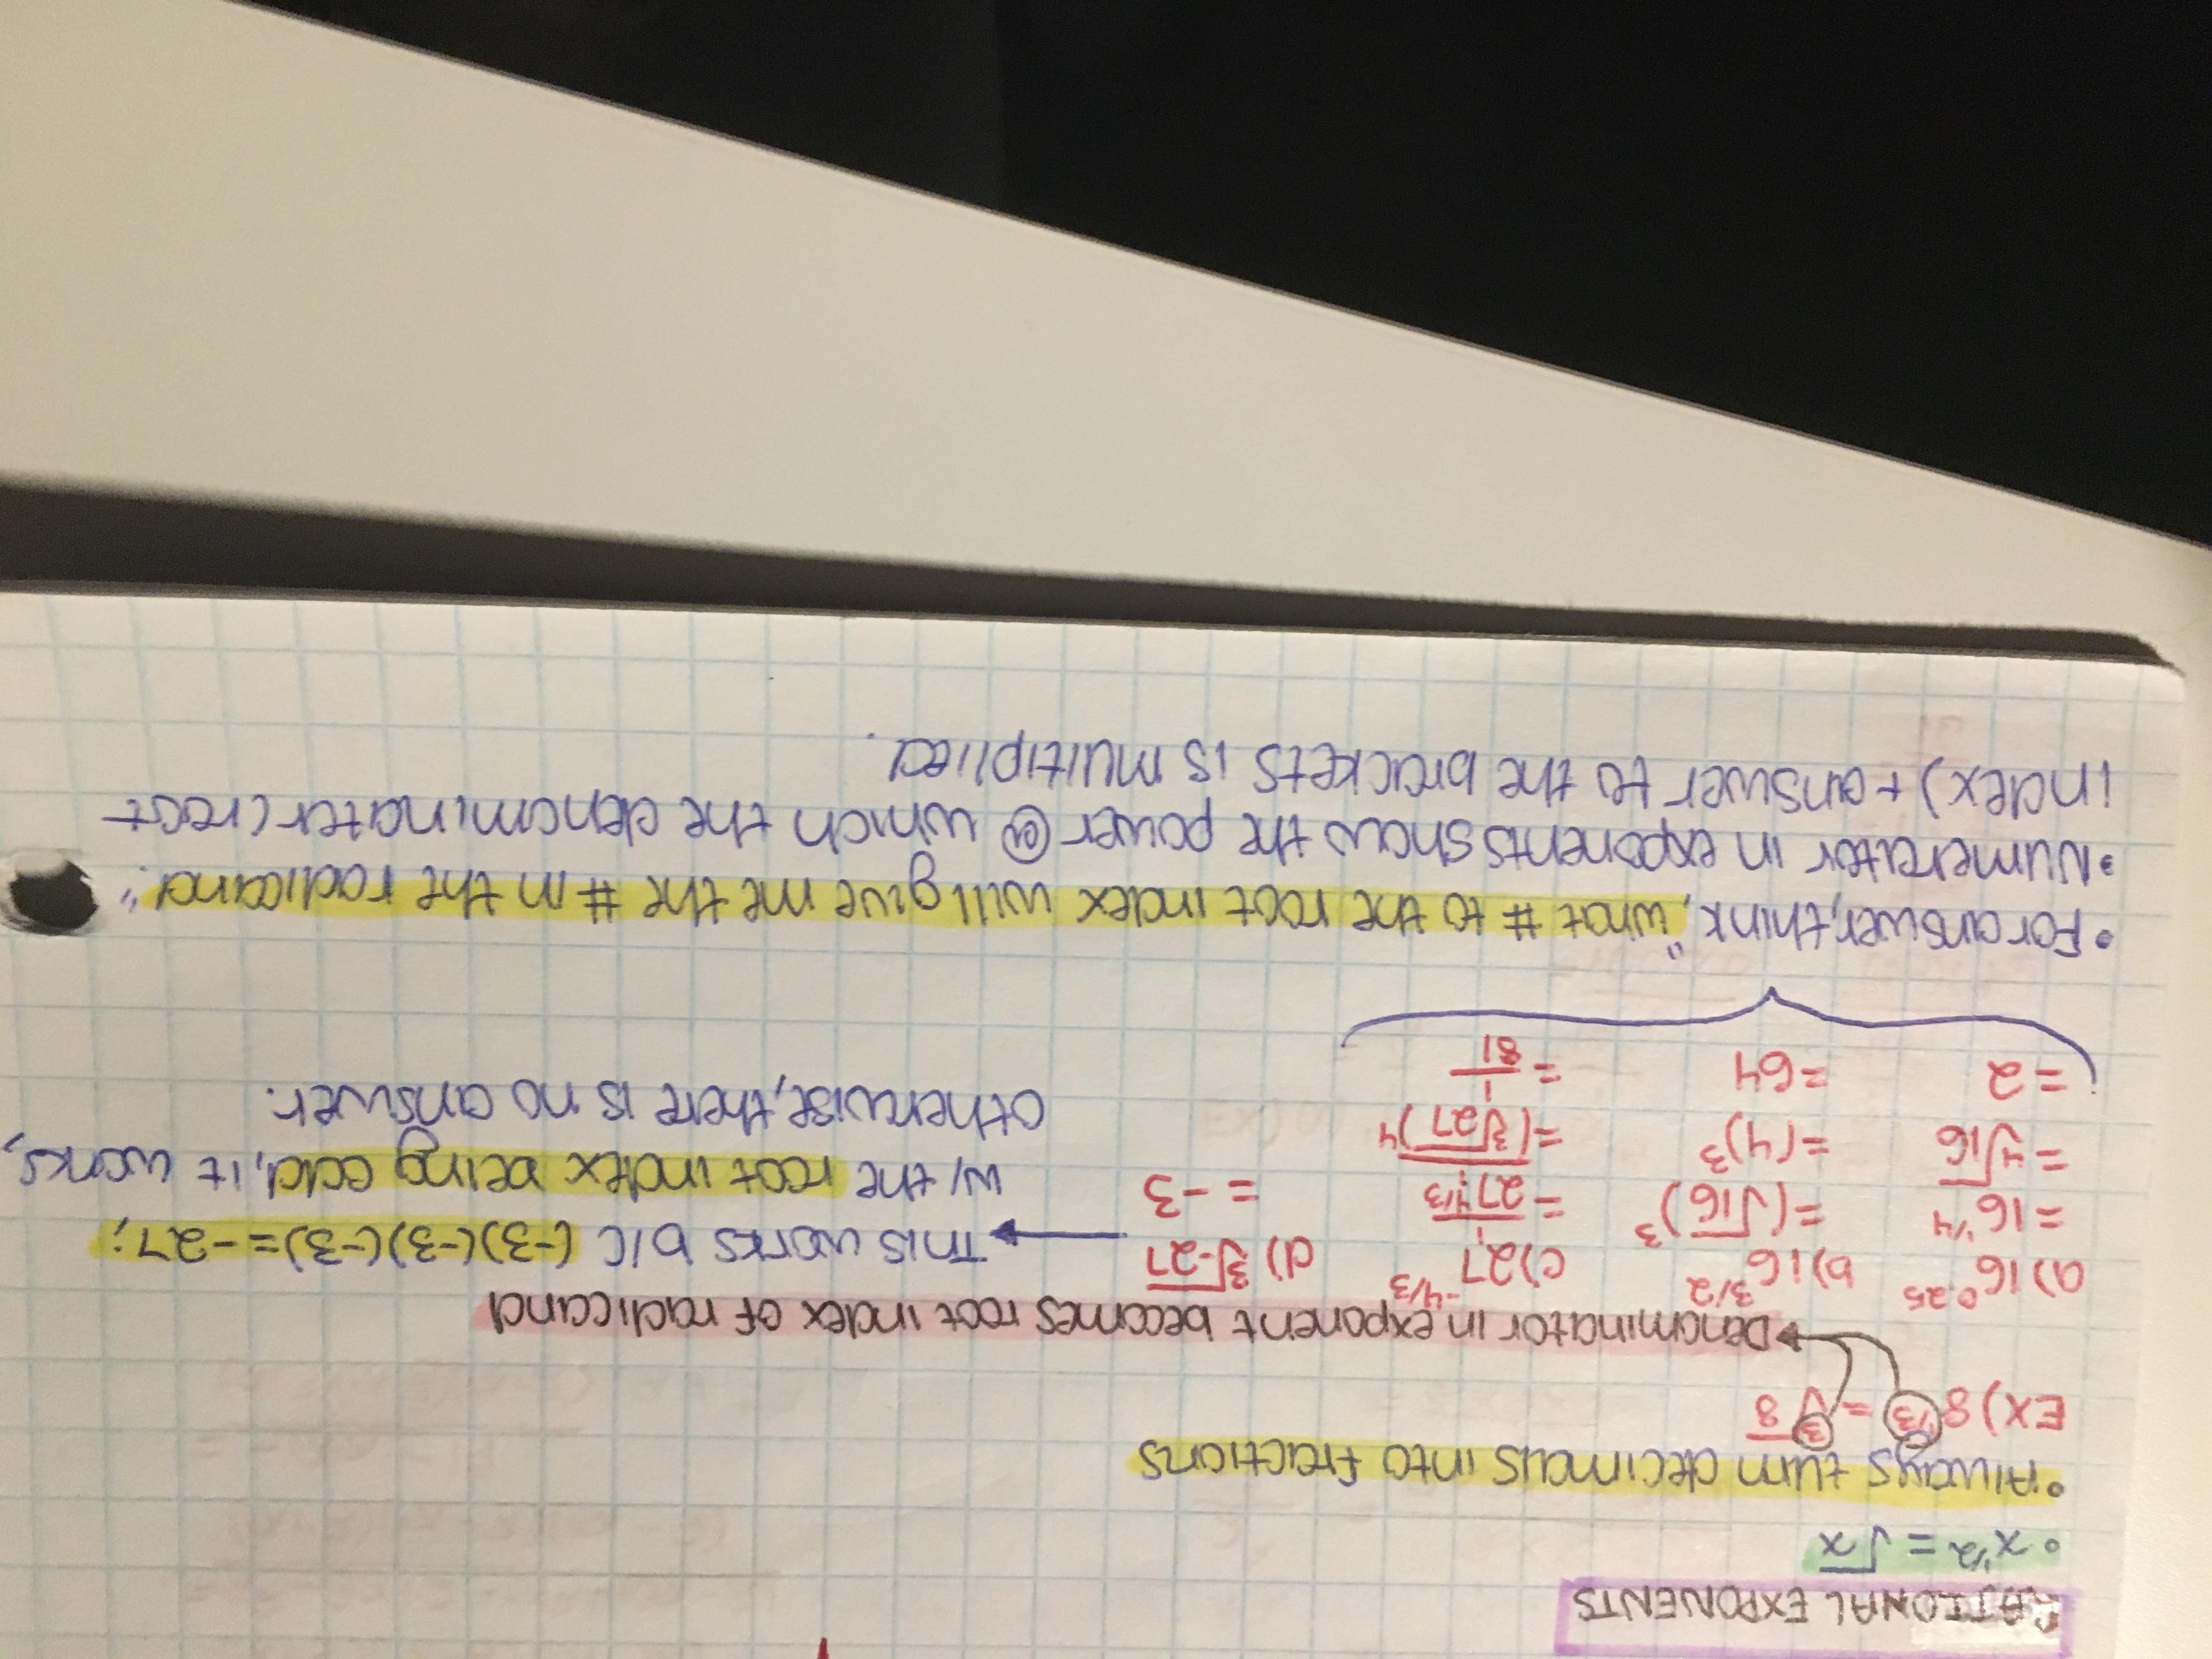 RATIONAL EXPONENTS
• x^1/2 = √x
• Always turn decimals into fractions
Ex) 8^1/3 = ∛8
Denominator in exponent becomes root index of radicand
a) 16^0.25 b) 16^3/2 c) 27^-4/3 d) ∛-27
= 16^1/4 = (√16)^3 = 1/27^4/3 = -3
= ∜16 = (4)^3 = 1/(∛27)^4
= 2 = 64 = 1/81
This works b/c (-3)(-3)(-3) = -27;
w/ the root index being odd, it works,
otherwise, there is no answer.
• For answer, think, "what # to the root index will give me the # in the radicand."
• Numerator in exponents show the power @ which the denominator (root
index) + answer to the brackets is multiplied.